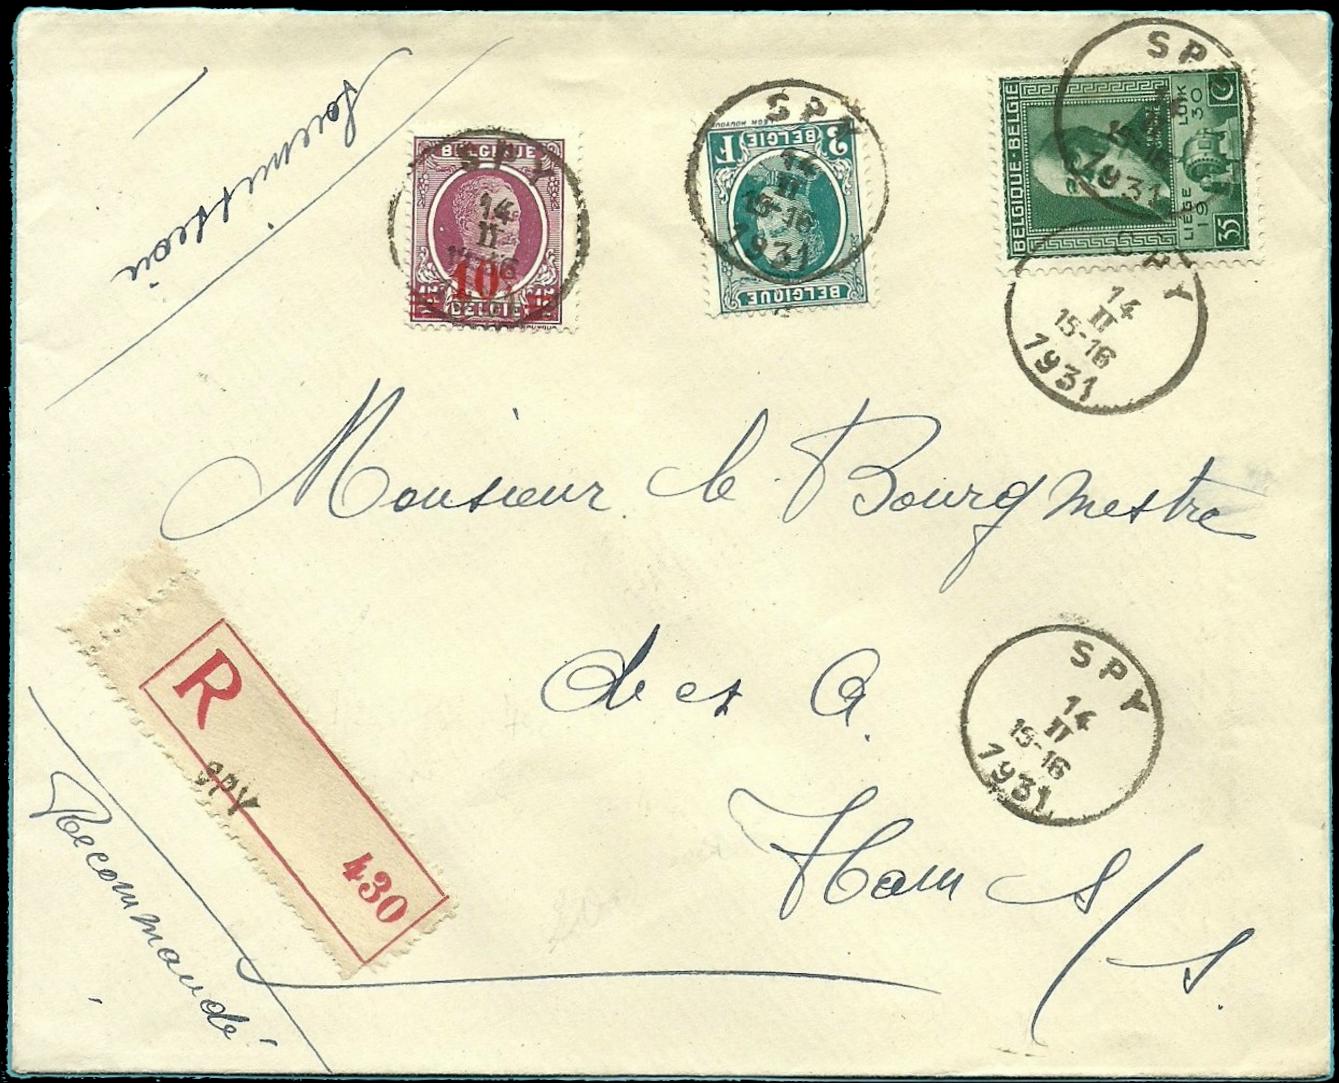 Soumission
BELGIQUE
10
BELGIE
SPY
14
II
15-16
1931
BELGIE
2 F
BELGIQUE
SPY
14
II
15-16
1931
BELGIQUE·BELGIE
LIEGE 1930 LUIK
35
C
SPY
15-16
1931
SPY
14
II
15-16
1931
Monsieur le Bourgmestre
de et à
Ham s/s.
SPY
14
II
15-16
1931
R
SPY
430
Recommandé